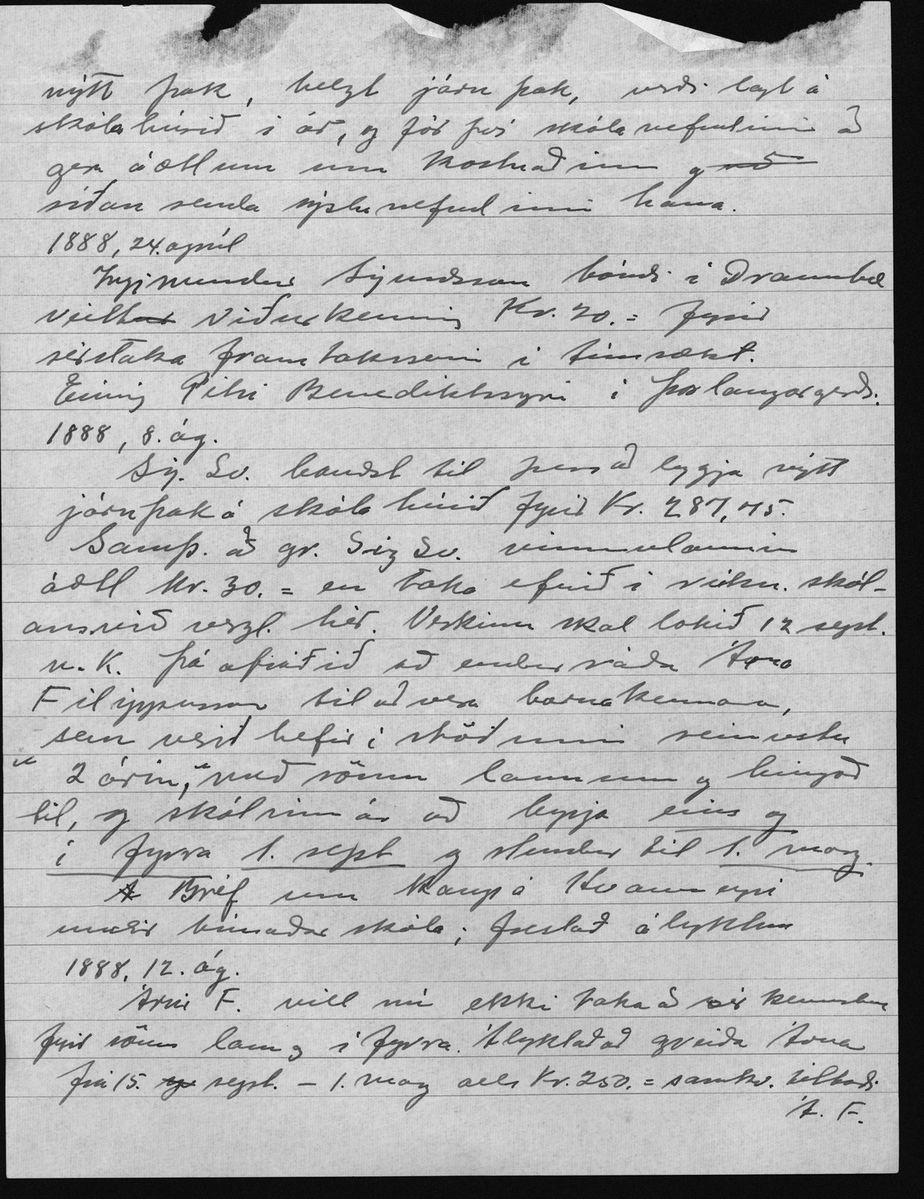 nýtt þak, helzt járn þak, verði lagt á
skólahúsið í ár, og fór því skólanefndinni að
gera áætlun um kostnaðinn og
síðan senda sýslunefndinni hana.
1888, 24. apríl
Sigurðsson bóndi í Draumbæ
veitt viðurkenning Kr. 20.= fyrir
sérstaka framtakssemi í
Einnig Pétri Benediktssyni í Þorlaugargerði.
1888, 8. ág.
Sig. Sv. bauðst til þess að leggja nýtt
járnþak á skólahúsið fyrir Kr. 287,75.
Samþ. að gr. Sig Sv. vinnulaunin
áætl Kr. 30.= en taka efnið í reikn. skól-
ans við verzl. hér. Verkinu skal lokið 12 sept.
n.k. Þá afráðið að endurráða Árna
Filippusson til að vera barnakennara,
sem verið hefir í stöðunni seinustu
" 2 árin," með sömu launum og hingað
til, og skólinn á að byrja eins og
í fyrra 1. sept og stendur til 1. maí.
Bréf um kaup á Hvanneyri
undir búnaðarskóla; frestað ályktun
1888, 12. ág.
Árni F. vill nú ekki taka að sér kennsluna
fyrir sömu laun og í fyrra. Ályktað að greiða Árna
frá 15. sept. – 1. maí alls Kr. 250.= samkv. tilboði
Á. F.